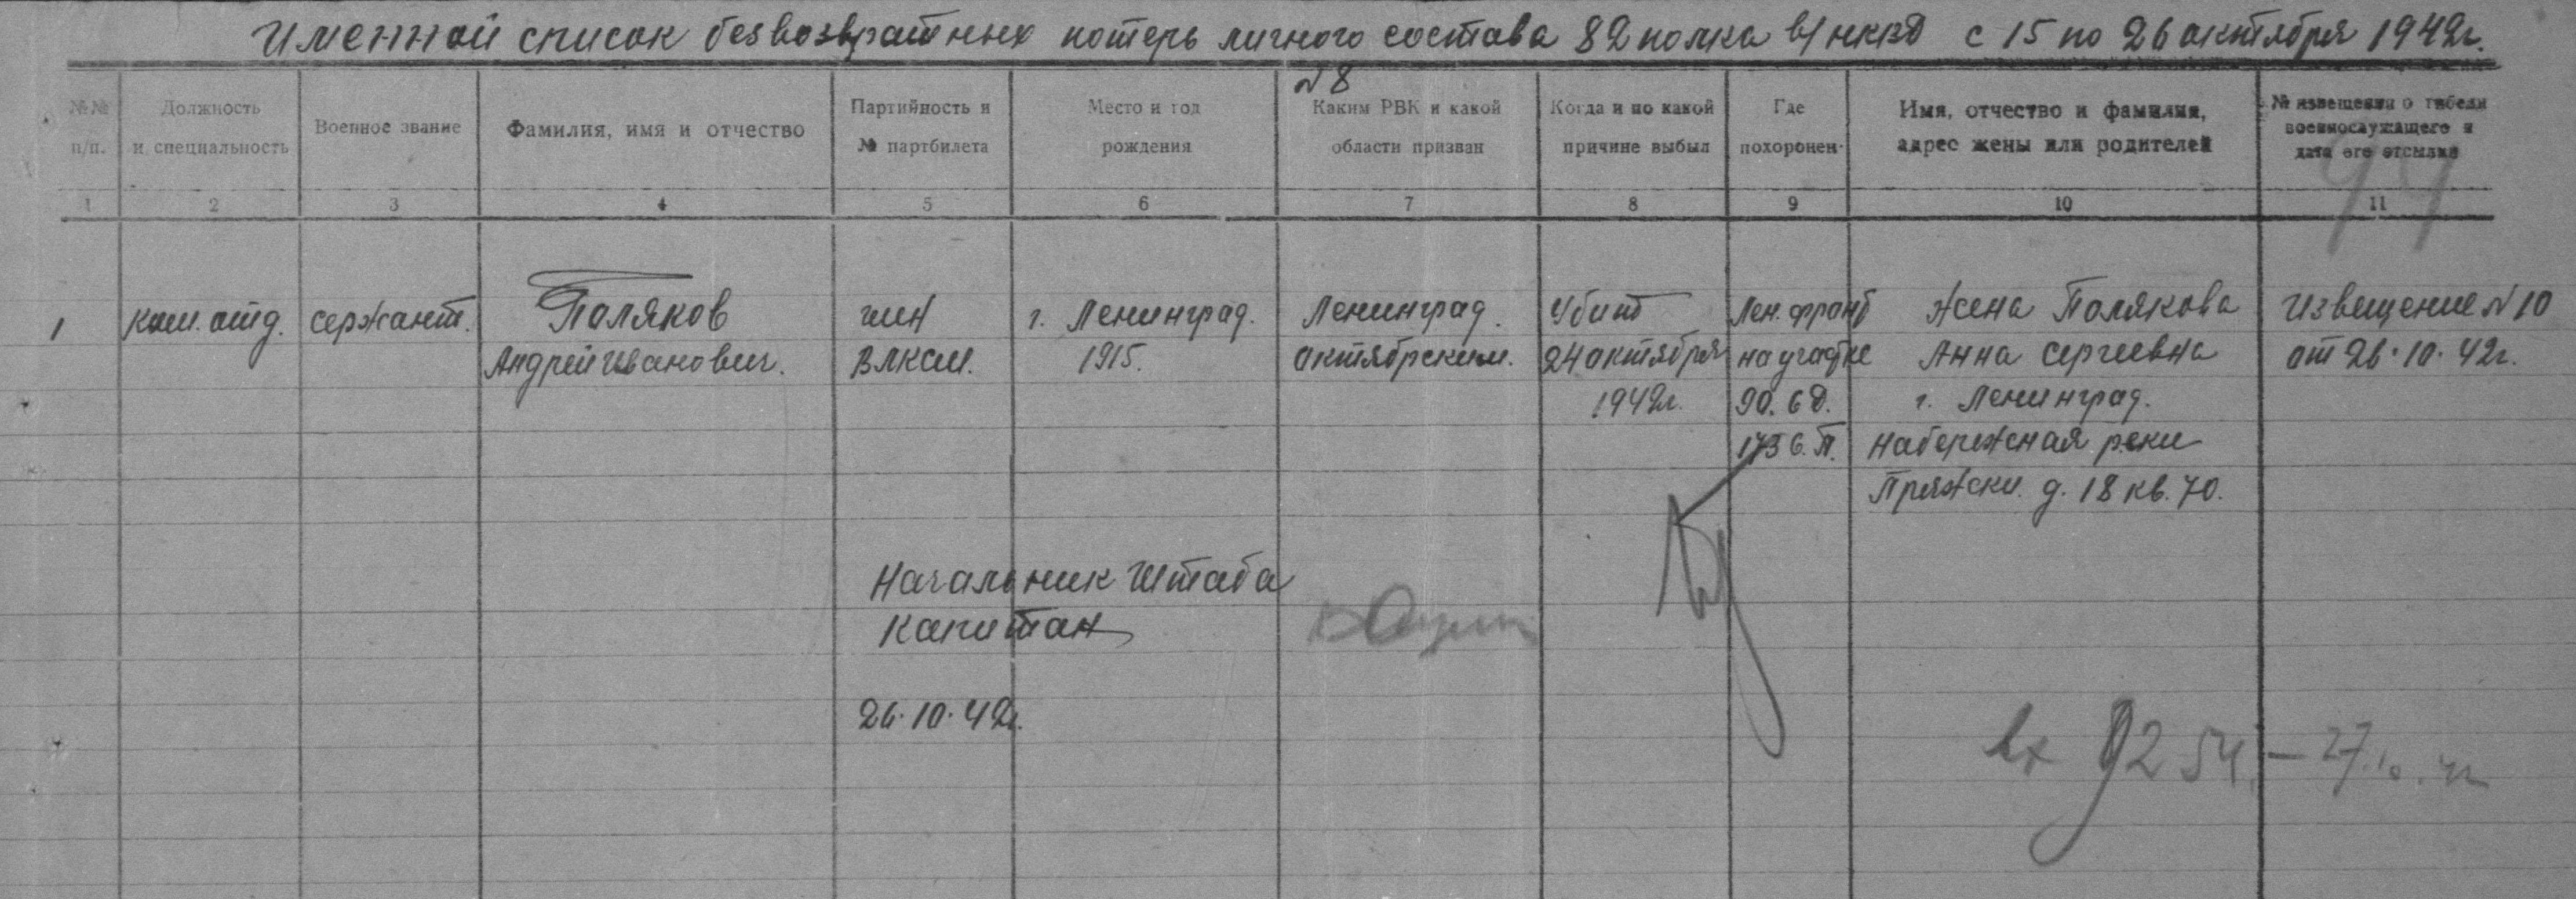 Именной список безвозвратных потерь личного состава 82 полка в/НКВД с 15 по 26 октября 1942г.
№ 8
№№ п/п.
Должность и специальность
Военное звание
Фамилия, имя и отчество
Партийность и № партбилета
Место и год рождения
Каким РВК и какой области призван
Когда и по какой причине выбыл
Где похоронен
Имя, отчество и фамилия, адрес жены или родителей
№ извещения о гибели военнослужащего и дата его отсылки
1 2 3 4 5 6 7 8 9 10 11
1 ком. отд. сержант. Поляков член г. Ленинград. Ленинград. Убит Лен. фронт Жена Полякова Извещение №10
Андрей Иванович. ВЛКСМ. 1915. Октябрским. 24 октября на участке Анна Сергеевна от 26.10.42г.
1942г. 90. с д. г. Ленинград.
173 с. п. Набережная реки
Пряжки. д. 18 кв. 70.
Начальник Штаба
Капитан
26.10.42г.
вх 9254 – 27.10.42